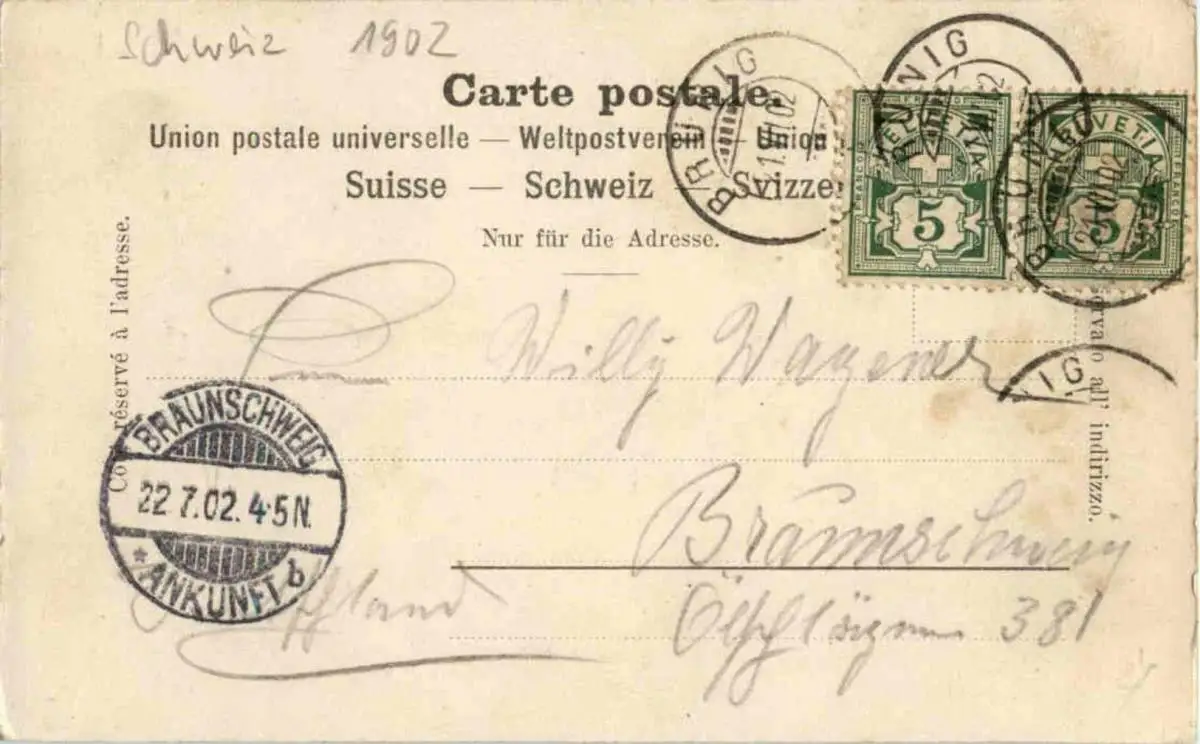 Schweiz 1902
Carte postale.
Union postale universelle — Weltpostverein — Union
Suisse — Schweiz — Svizze
Nur für die Adresse.
BRÜNIG
21.VII.02
BRÜNIG
VII 02
BRÜNIG
21.VII.02
IG
FRANCO
HELVETIA
5
FRANCO
HELVETIA
5
Côté réservé à l'adresse.
ervato all' indirizzo.
Willy Wagener
Braunschweig
381
BRAUNSCHWEIG
22.7.02. 4-5N.
* ANKUNFT b